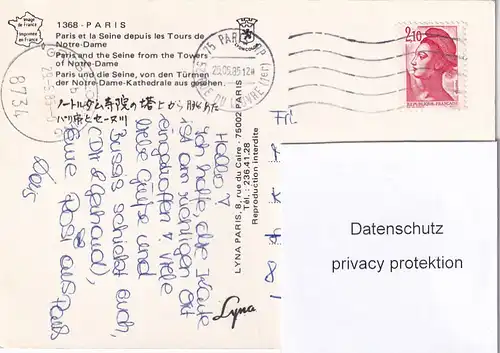 Image de France
Imprimée en France
1368 - PARIS
Paris et la Seine depuis les Tours de
Notre-Dame
Paris and the Seine from the Towers
of Notre-Dame
Paris und die Seine, von den Türmen
der Notre-Dame-Kathedrale aus gesehen.
ノートルダム寺院の塔上から眺めた
パリ市とセーヌ川
8734
75 PARIS
26.06.85 12H
2,10
REPUBLIQUE FRANCAISE
LYNA PARIS, 8, rue du Caire - 75002 PARIS
Tél.: 236.41.28
Reproduction interdite
Lyna
Hallo
Ich hoffe, die Karte
ist am richtigen Ort
eingetroffen. Viele
liebe Grüße und
Bussis schickt Euch,
eure Rosi aus Paris
Frl.
Datenschutz
privacy protektion